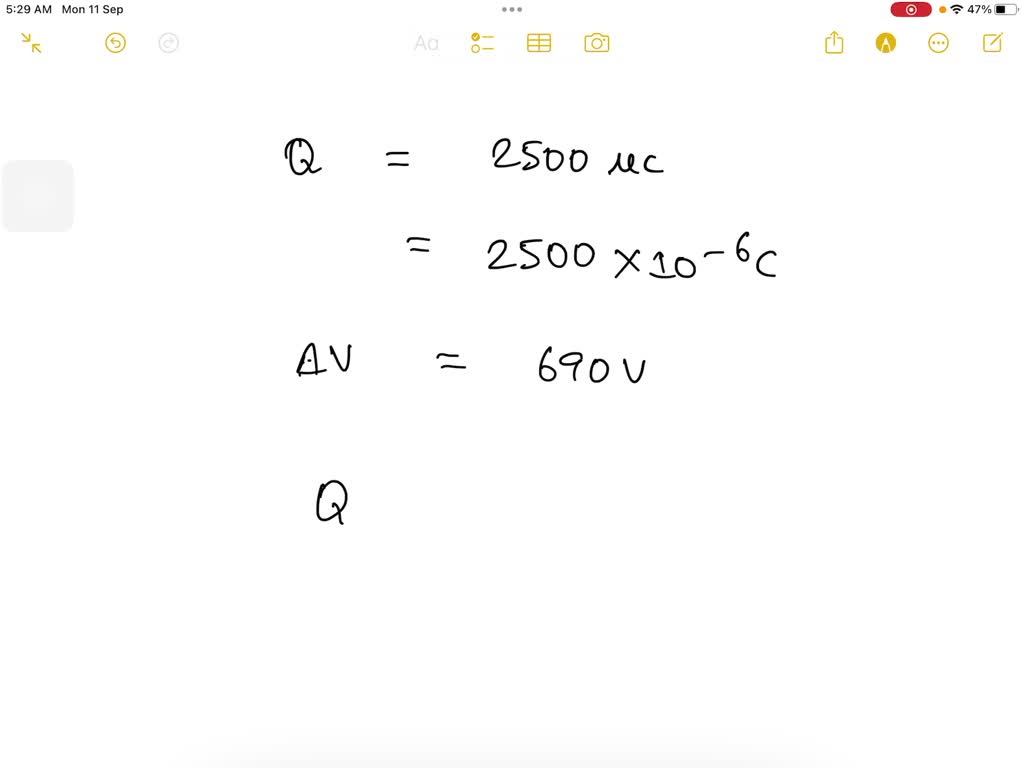 5:29 AM Mon 11 Sep 47%
Aa
Q = 2500 μc
= 2500 × 10⁻⁶C
ΔV = 690 V
Q